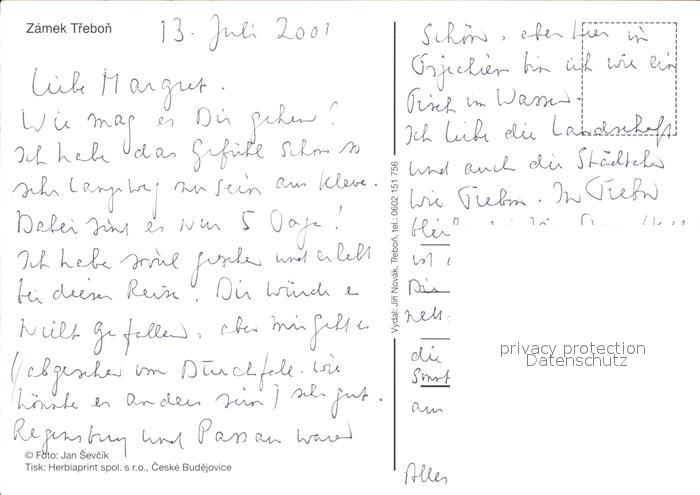 Zámek Třeboň
13. Juli 2001
Liebe Margret.
Wie mag es Dir gehen?
Ich habe das Gefühl schon so
sehr lang weg zu sein aus Kleve.
Dabei sind es nur 5 Tage!
Ich habe soviel gesehen und erlebt
bei dieser Reise. Dir würde es
nicht gefallen, aber mir geht es
(abgesehen vom Durchfall. wie
könnte es anders sein) sehr gut.
Regensburg und Passau waren
© Foto: Jan Ševčík
Tisk: Herbiaprint spol. s r.o., České Budějovice
Vydal: Jiří Novák, Třeboň, tel.: 0602 151 756
schön, aber hier in
Tschechien bin ich wie ein
Fisch im Wasser.
Ich liebe die Landschaft
und auch die Städtchen
wie Trebon. In Trebon
ist
Die
nett
die
Sonst
am
Alles
privacy protection
Datenschutz